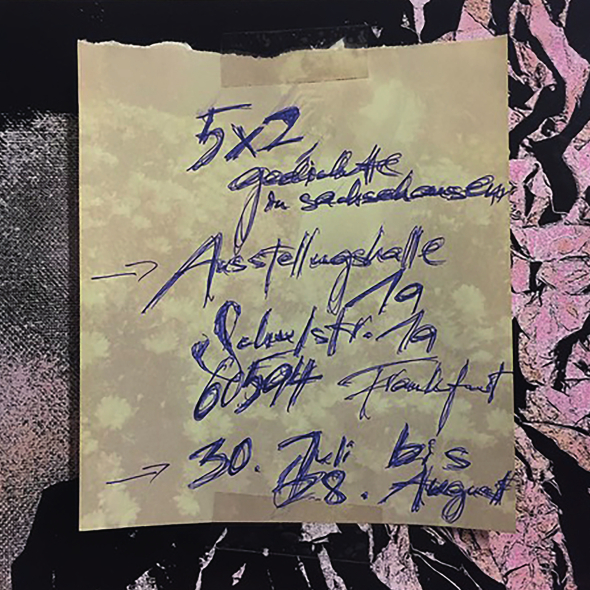 5x2
gedichtete
in sachsehausen
→ Ausstellungshalle
1a
Schulstr. 1a
60594 Frankfurt
→ 30. Juli bis
28. August